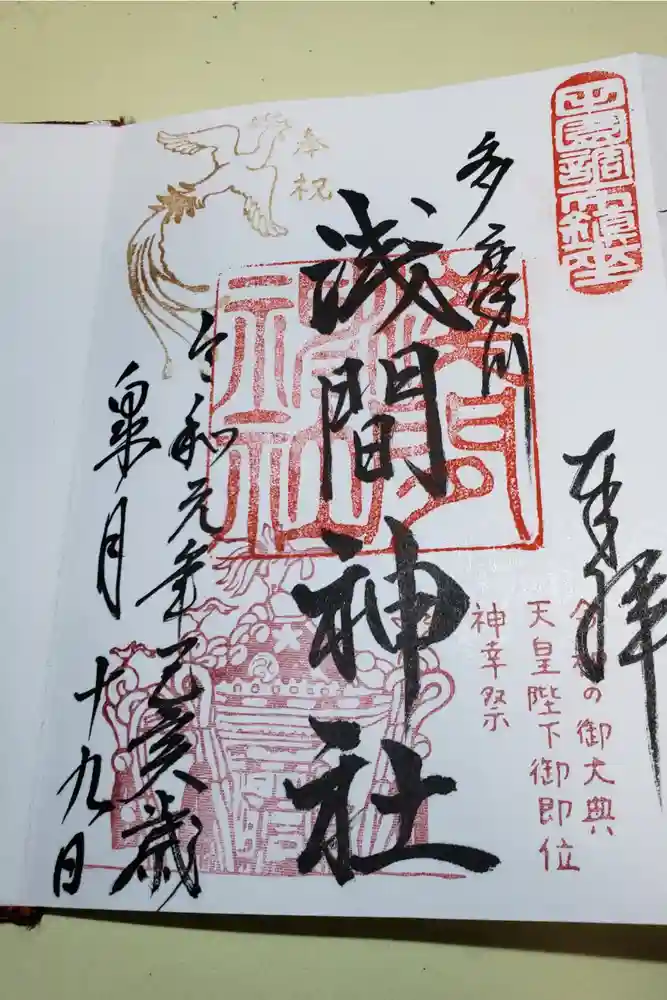 奉拝
令和の御大典
天皇陛下御即位
神幸祭
多摩川
浅間神社
奉祝
令和元年己亥歳
皐月
十九日